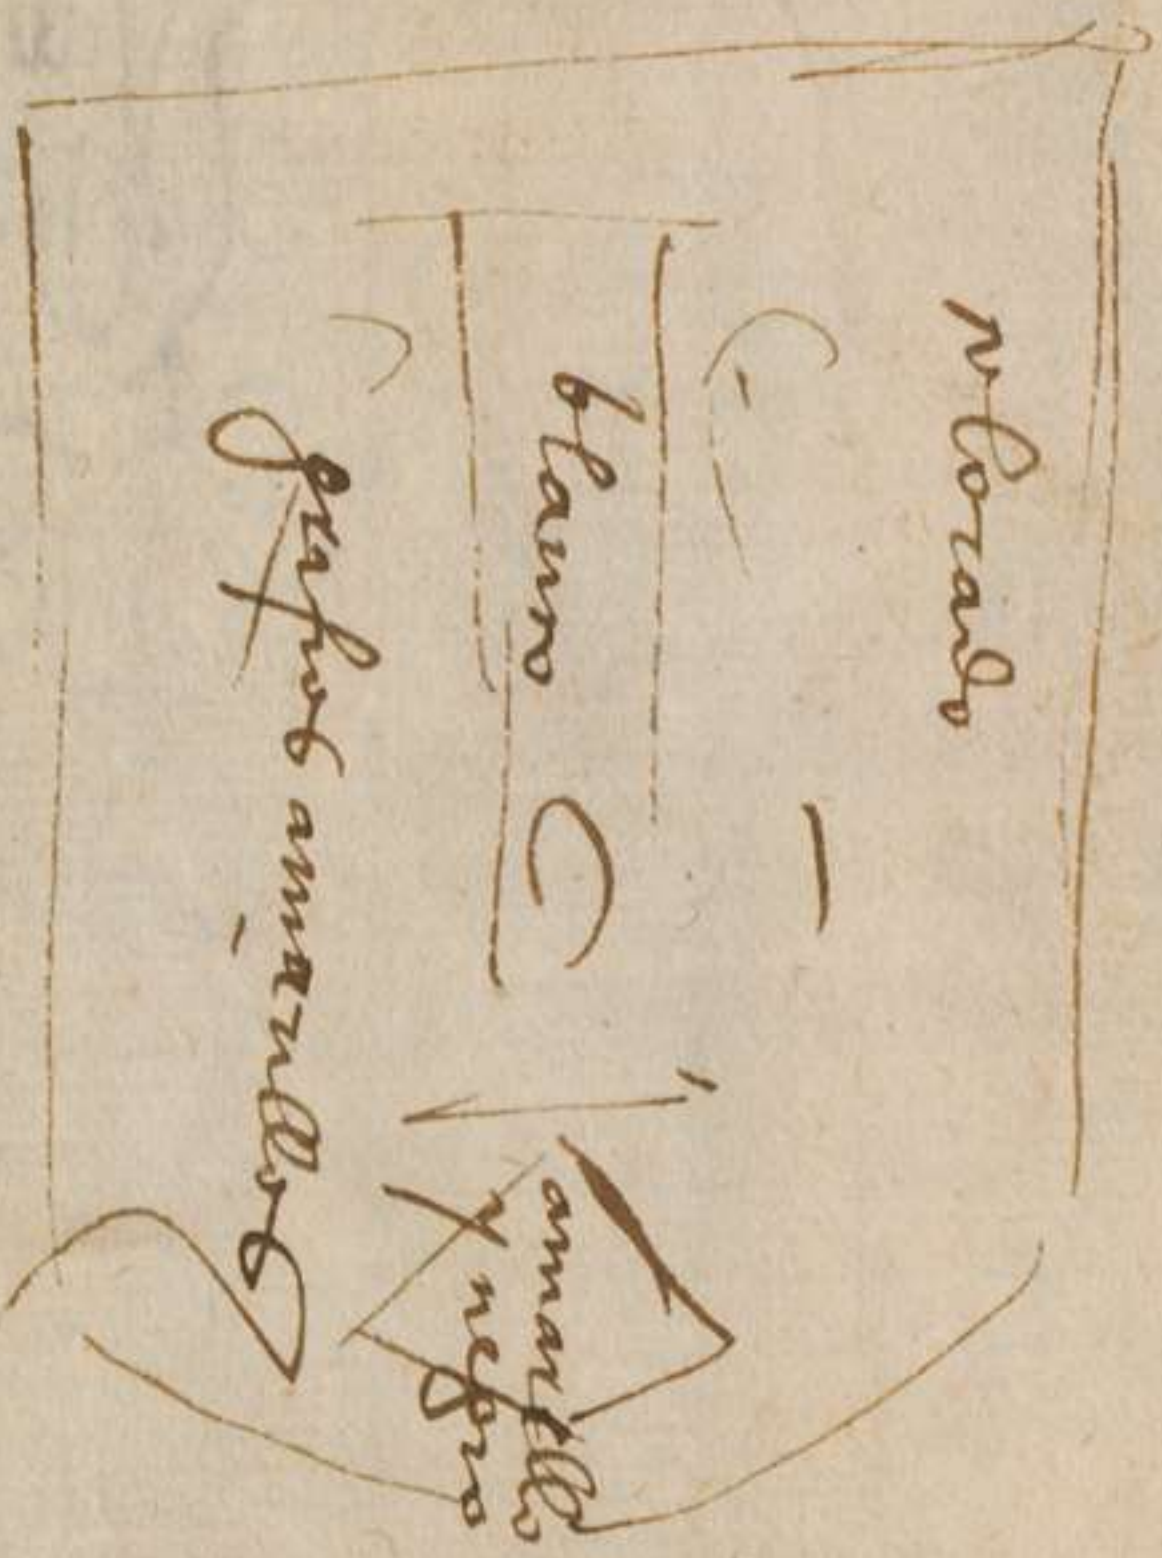 colorado
blanco
amarillo
y negro
grifos amarillos